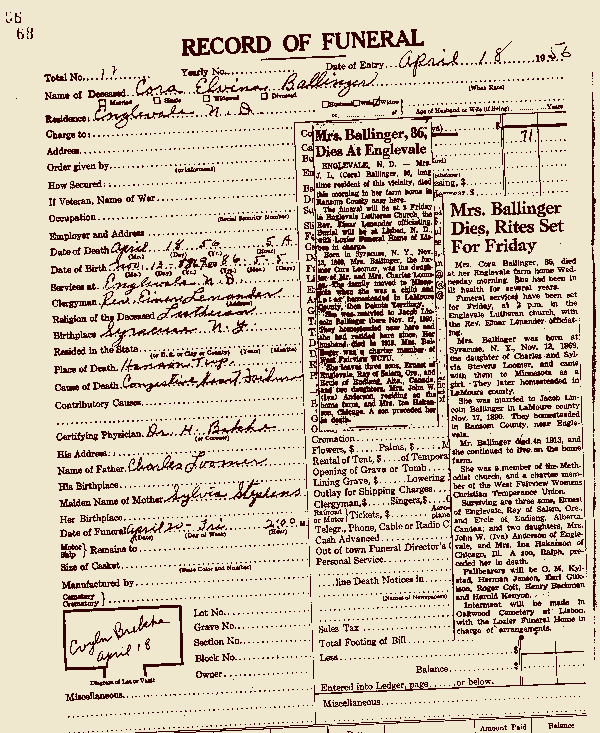 68
RECORD OF FUNERAL
Total No. 17 Yearly No. Date of Entry April 18 1956
Name of Deceased Cora Elvina Ballinger
Married Single Widowed Divorced
Residence: Englevale N. D.
Charge to:
Address
Order given by
(or informant)
How Secured:
If Veteran, Name of War
Occupation
(Social Security Number)
Employer and Address
Date of Death April 18 56 5 A.
Date of Birth Nov. 12 1869 Age 86 5 5
Services at Englevale N. D.
Clergyman Rev. Elmer Lenander
Religion of the Deceased Lutheran
Birthplace Syracuse N. Y.
Resided in the State
(or U. S. or City or County) (Years) (Months)
Place of Death Hanson Twp.
Cause of Death Congestive heart failure
Contributory Causes
Certifying Physician Dr. H.
(or Coroner)
His Address
Name of Father Charles Loomer
His Birthplace
Maiden Name of Mother Sylvia Stephens
Her Birthplace
Date of Funeral April 20 - Fri 2:00 P.M.
(Date) (Day of Week) (Hour)
Motor Ship Remains to
Size of Casket
(State Color and Number)
Manufactured by
Cemetery
Crematory
April 18
Diagram of Lot or Vault
Lot No.
Grave No.
Section No.
Block No.
Owner
Miscellaneous
Age of Husband or Wife (if living) Years
71
Mrs. Ballinger, 86,
Dies At Englevale
ENGLEVALE, N. D. — Mrs.
J. L. (Cora) Ballinger, 86, long
time resident of this vicinity, died
this morning in her farm home in
Ransom county near here.
The funeral will be at 2 Friday
in Englevale Lutheran Church, the
Rev. Elmer Lenander officiating.
Burial will be at Lisbon, N. D.,
with Lozier Funeral Home of Lis-
bon in charge.
Born in Syracuse, N. Y., Nov.
12, 1869, Mrs. Ballinger, the for-
mer Cora Loomer, was the daugh-
ter of Mr. and Mrs. Charles Loom-
er. The family moved to Minne-
sota when she was a child and
later homesteaded in LaMoure
County, then Dakota Territory.
She was married to Jacob Lin-
coln Ballinger there Nov. 17, 1890.
They homesteaded near here and
she had resided here since. Her
husband died in 1913. Mrs. Bal-
linger was a charter member of
West Fairview WCTU.
She leaves three sons, Ernest of
Englevale, Ray of Salem, Ore., and
Ercle of Endiang, Alta., Canada,
and two daughters, Mrs. John W.
(Iva) Anderson, residing on the
home farm, and Mrs. Ina Hakan-
son, Chicago. A son preceded her
in death.
Mrs. Ballinger
Dies, Rites Set
For Friday
Mrs. Cora Ballinger, 86, died
at her Englevale farm home Wed-
nesday morning. She had been in
ill health for several years.
Funeral services have been set
for Friday, at 2 p.m. in the
Englevale Lutheran church, with
the Rev. Elmer Lenander officiat-
ing.
Mrs. Ballinger was born at
Syracuse, N. Y., Nov. 12, 1869,
the daughter of Charles and Syl-
via Stevens Loomer, and came
with them to Minnesota as a
girl. They later homesteaded in
LaMoure county.
She was married to Jacob Lin-
coln Ballinger in LaMoure county
Nov. 17, 1890. They homesteaded
in Ransom County, near Engle-
vale.
Mr. Ballinger died in 1913, and
she continued to live on the home
farm.
She was a member of the Meth-
odist church, and a charter mem-
ber of the West Fairview Womens
Christian Temperance Union.
Surviving are three sons, Ernest
of Englevale, Ray of Salem, Ore.,
and Ercle of Endiang, Alberta,
Canada; and two daughters, Mrs.
John W. (Iva) Anderson of Engle-
vale, and Mrs. Ina Hakanson of
Chicago, Ill. A son, Ralph, pre-
ceded her in death.
Pallbearers will be O. M. Kyl-
stad, Herman Jensen, Earl Gilk-
ison, Roger Colt, Henry Backman
and Harold Kenyon.
Interment will be made in
Oakwood Cemetery at Lisbon,
with the Lozier Funeral Home in
charge of arrangements.
Cremation
Flowers, $ Palms, $
Rental of Tent, $ of Tempora
Opening of Grave or Tomb
Lining Grave, $ Lowering
Outlay for Shipping Charges
Clergyman, $ Singers, $
Railroad or Motor Tickets, $ Aero-plane
Telegr., Phone, Cable or Radio C
Cash Advanced
Out of town Funeral Director's
Personal Service
line Death Notices in
(Names of Newspapers)
Sales Tax
Total Footing of Bill $
Less
Balance
Entered into Ledger, page or below.
Miscellaneous
Amount Paid Balance